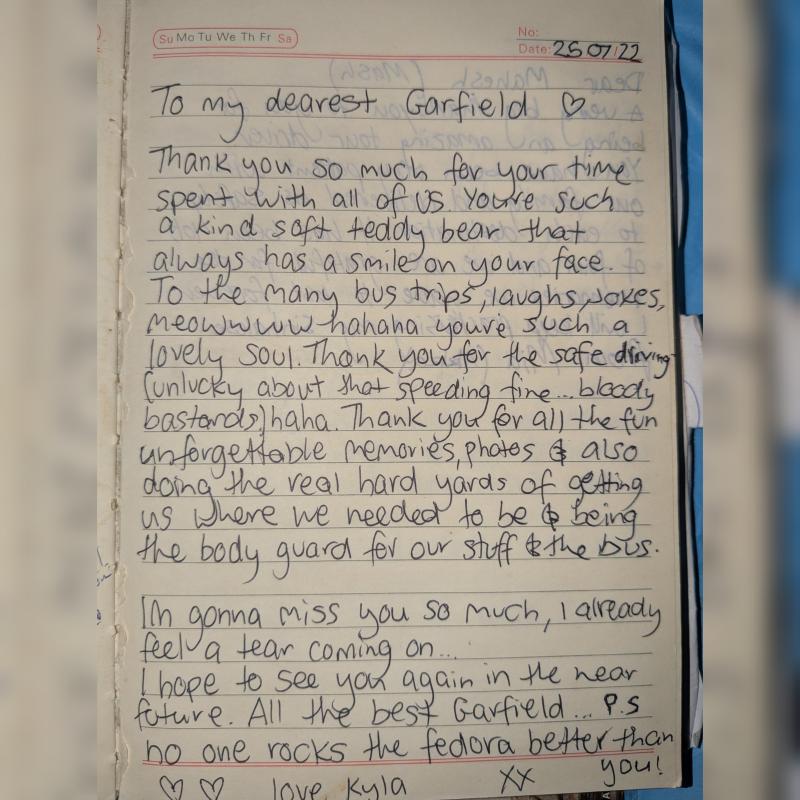 Su Mo Tu We Th Fr Sa
No:
Date: 25 07/22
To my dearest Garfield ♡
Thank you so much for your time
spent with all of us. You're such
a kind soft teddy bear that
always has a smile on your face.
To the many bus trips, laughs, jokes,
meowwww hahaha you're such a
lovely soul. Thank you for the safe driving
(unlucky about that speeding fine... bloody
bastards) haha. Thank you for all the fun
unforgettable memories, photos & also
doing the real hard yards of getting
us where we needed to be & being
the body guard for our stuff & the bus.
Im gonna miss you so much, I already
feel a tear coming on...
I hope to see you again in the near
future. All the best Garfield... P.S
no one rocks the fedora better than
you!
♡ ♡ love Kyla XX